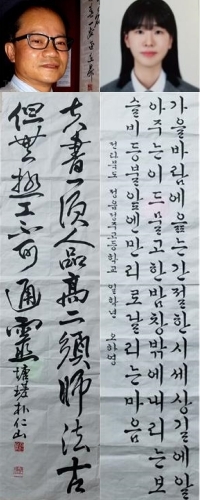 가을바람에읊는간절한시세상길에알
아주는이드물고한밤창밖에내리는보
슬비등불앞에만리로날리는마음
전라북도 고등학교 일학년 오하영
書一須人品高二須師法古
但無極工不可通靈 朴仁山